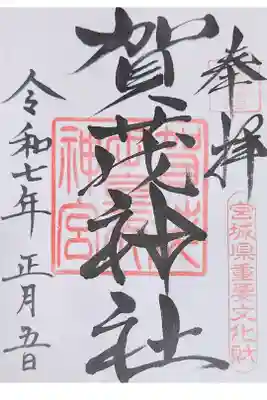 奉拝
宮城県重要文化財
賀茂神社
令和七年 正月五日